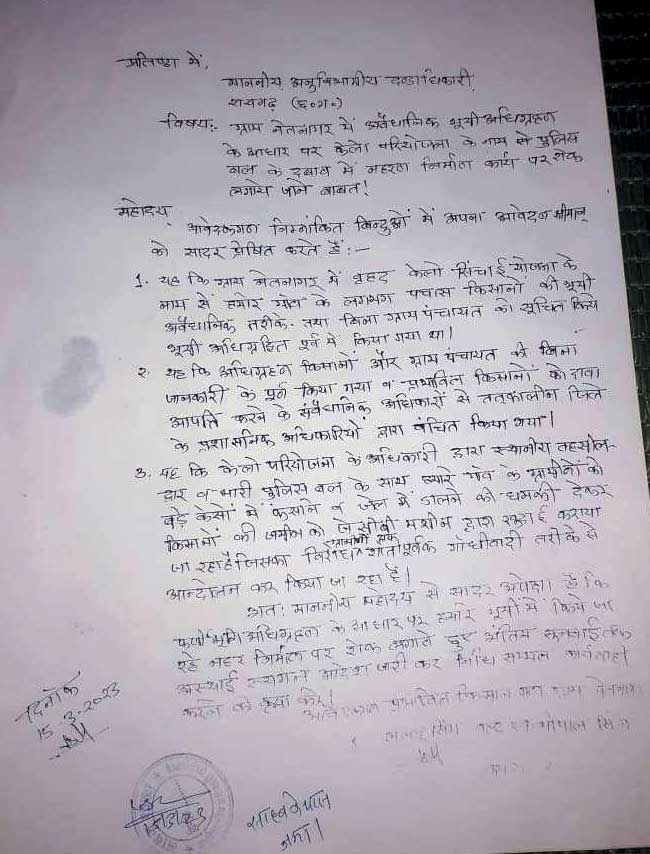 प्रतिष्ठा में,
माननीय अनुविभागीय दण्डाधिकारी
रायगढ़ (छ.ग.)
विषय:- ग्राम नेतनागर में अवैधानिक भूमी अधिग्रहण
के आधार पर केलो परियोजना के नाम से पुलिस
बल के दबाव में नहर निर्माण कार्य पर रोक
लगाये जाने बाबत!
महोदय,
आवेदकगण निम्नांकित बिन्दुओं में अपना आवेदन श्रीमान्
को सादर प्रेषित करते हैं:-
1. यह कि ग्राम नेतनागर में वृहद केलो सिंचाई योजना के
नाम से हमारे गाँव के लगभग पचास किसानों की भूमी
अवैधानिक तरीके तथा बिना ग्राम पंचायत को सूचित किये
भूमी अधिग्रहित पूर्व में किया गया था।
2. यह कि अधिग्रहण किसानों और ग्राम पंचायत की बिना
जानकारी के पूर्ण किया गया व प्रभावित किसानों को दावा
आपत्ति करने के संवैधानिक अधिकारों से तत्कालीन जिले
के प्रशासनिक अधिकारियों द्वारा वंचित किया गया।
3. यह कि केलो परियोजना के अधिकारी द्वारा स्थानीय तहसील-
दार व भारी पुलिस बल के साथ हमारे गाँव के ग्रामीणों को
बड़े केसों में फंसाने व जेल में डालने की धमकी देकर
किसानों की जमीन को जे सीबी मशीन द्वारा खुदाई कराया
जा रहा है जिसका विरोध शांतीपूर्वक गाँधीवादी तरीके से
आन्दोलन कर किया जा रहा है।
अत: माननीय महोदय से सादर अपेक्षा है कि
भूमि अधिग्रहण के आधार पर हमारे भूमी में किये जा
रहे नहर निर्माण पर रोक लगाते हुए अंतिम सुनवाई तक
अस्थाई स्थगन आदेश जारी कर विधि सम्मत कार्यवाही
करने की कृपा करें।
प्रभावित किसान ग्राम
दिनाँक
15.3.2023